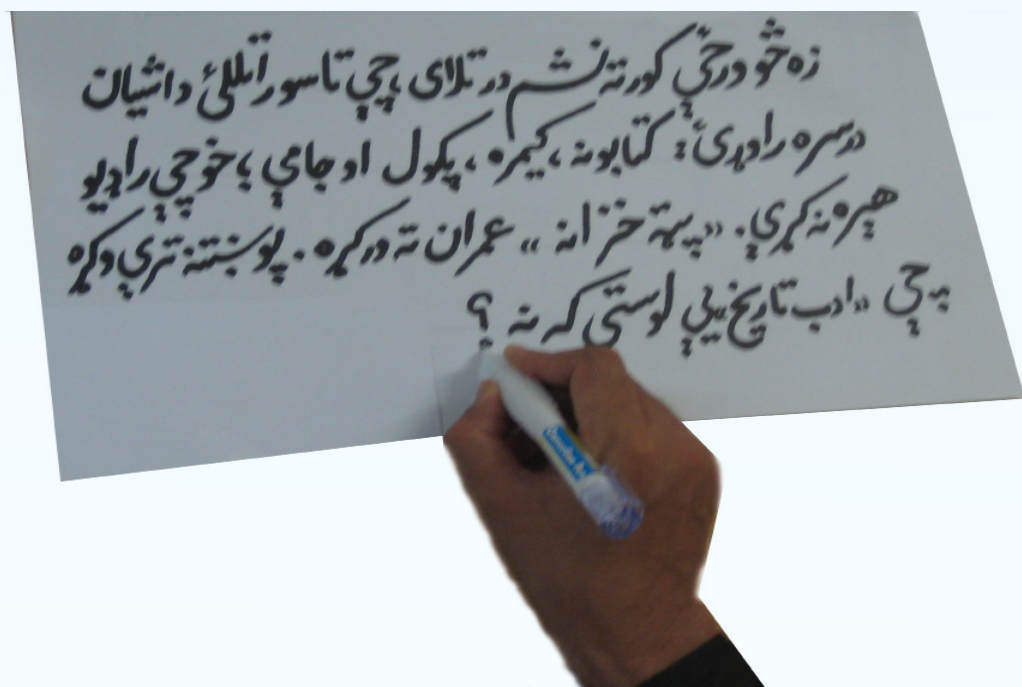 زه خو درځې کورته نشم درتلای ، چې تاسو راتللئ دا شیان
درسره راوړئ: کتابونه ، کیمره ، پکول او جامې ؛ خو چې راډیو
هېره نه کړې. «پټه خزانه» عمران ته ورکړه . پوښتنه ترې وکړه
چې «ادب تاریخ» یې لوستی که نه ؟